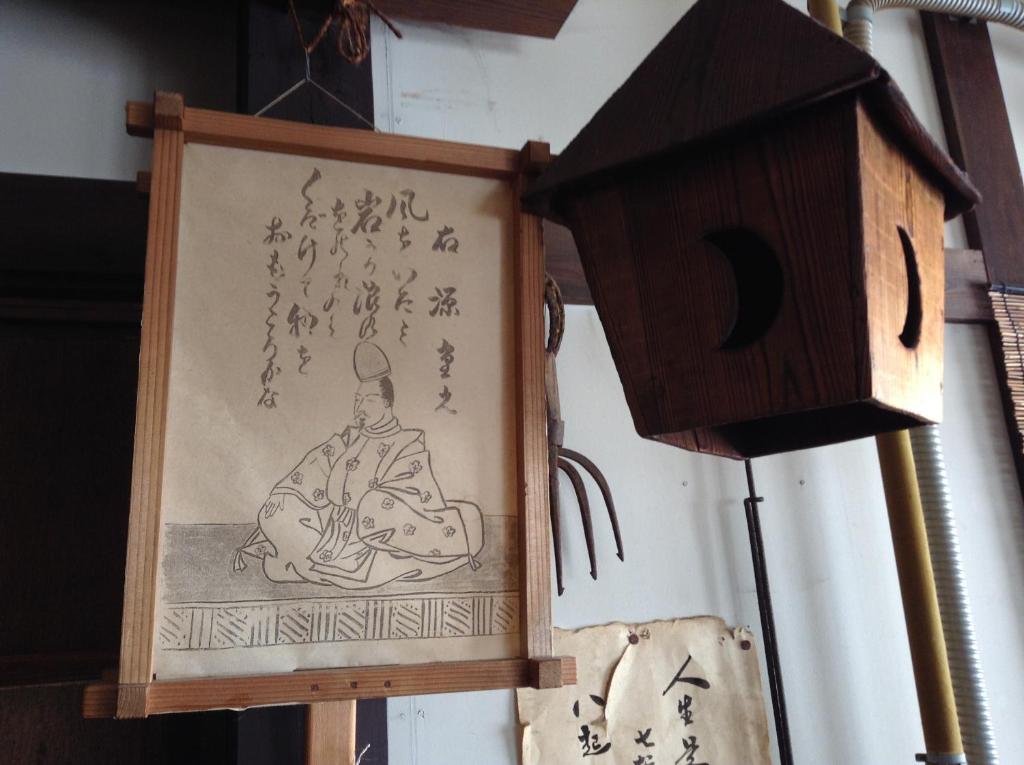 右 源 重之
風をいたミ
岩うつ浪の
をのれのミ
くだけて物を
おもふころかな
人生是
七転
八起